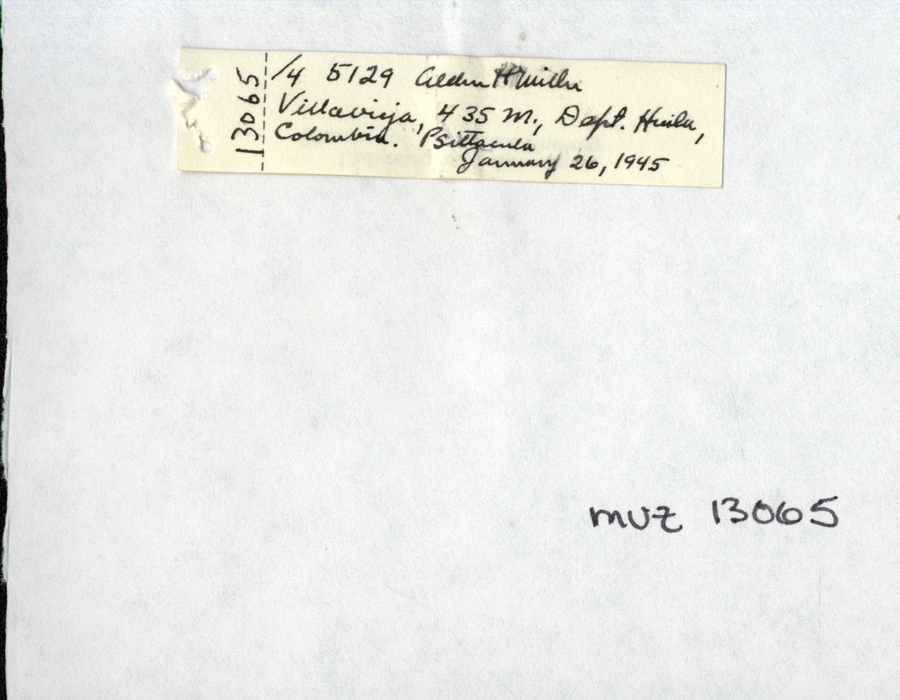 13065
/4 5129 Alden H Miller
Villavieja, 435 m., Dept. Huila,
Colombia. Psittacula
January 26, 1945
MVZ 13065